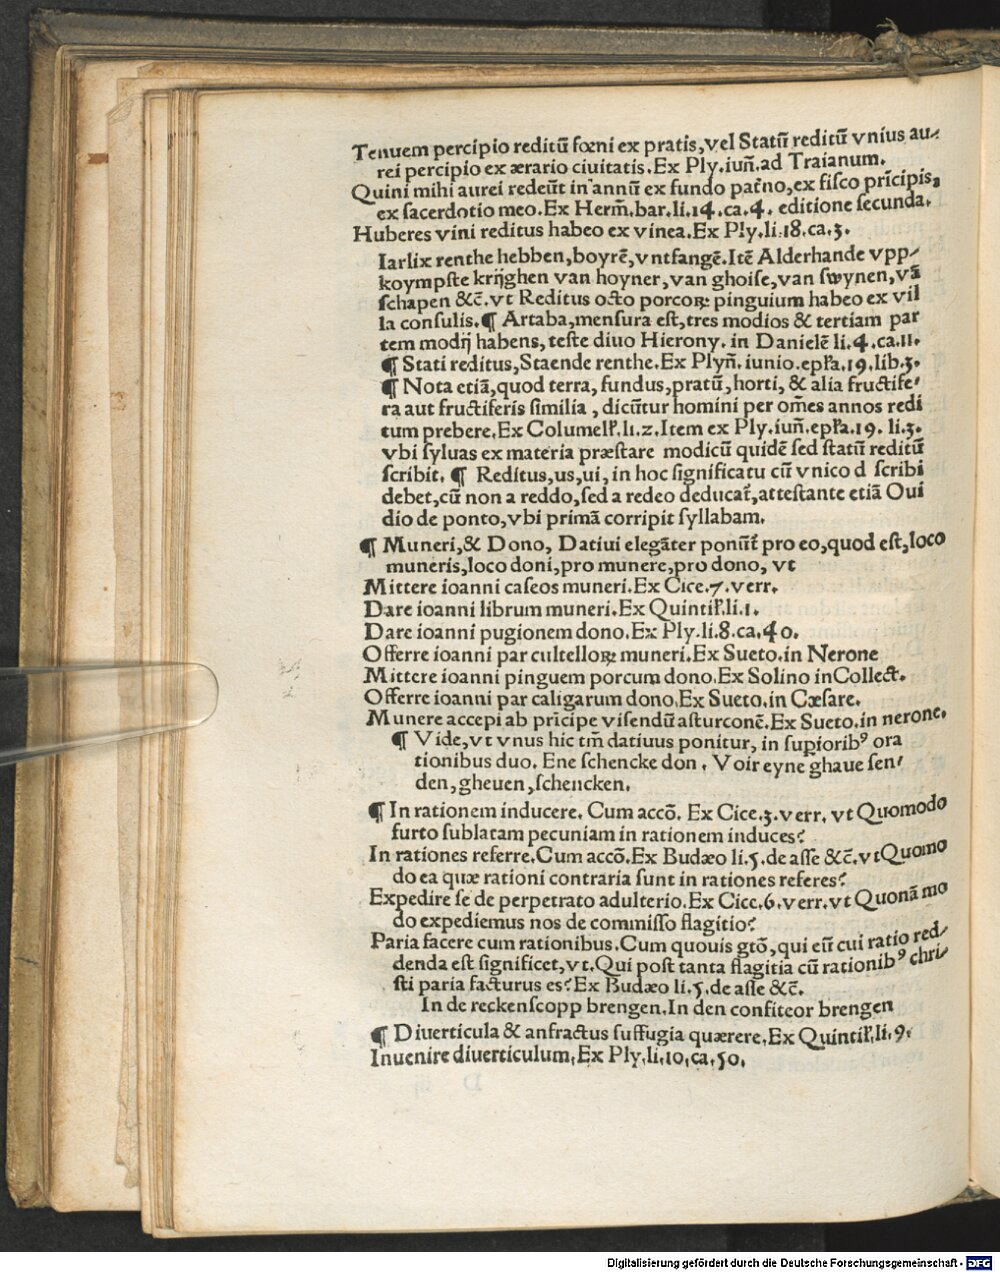 Tenuem percipio reditū fœni ex pratis,vel Statū reditū vnius au⸗
rei percipio ex ærario ciuitatis.Ex Ply.iuñ.ad Traianum.
Quini mihi aurei redeūt in annū ex fundo pat̃no,ex fisco prĩcipis,
ex sacerdotio meo.Ex Herm̃.bar.li.14.ca.4. editione secunda.
Huberes vini reditus habeo ex vinea.Ex Ply.li.18.ca.3.
Iarlix renthe hebben,boyrẽ,vntfangẽ.Itẽ Alderhande vpp⸗
koympste krijghen van hoyner,van ghoise,van swynen,vā
schapen &c̃.vt Reditus octo porcoꝝ pinguium habeo ex vil
la consulis.¶ Artaba,mensura est,tres modios & tertiam par
tem modij habens, teste diuo Hierony. in Danielẽ li.4.ca.11.
¶ Stati reditus,Staende renthe.Ex Plyñ. iunio.epl̃a.19.lib.3.
¶ Nota etiā,quod terra, fundus,pratū,horti, & alia fructife⸗
ra aut fructiferis similia , dicūtur homini per om̃es annos redi
tum prebere.Ex Columell̃.li.2.Item ex Ply.iuñ.epl̃a.19. li.3.
vbi syluas ex materia præstare modicū quidẽ sed statū reditū
scribit. ¶ Reditus,us,ui, in hoc significatu cū vnico d scribi
debet,cū non a reddo,sed a redeo deducat̃,attestante etiā Oui
dio de ponto,vbi primā corripit syllabam.
¶ Muneri,& Dono, Datiui elegāter ponūt̃ pro eo,quod est,loco
muneris,loco doni,pro munere,pro dono, vt
Mittere ioanni caseos muneri.Ex Cice.7.verr.
Dare ioanni librum muneri.Ex Quintil̃.li.1.
Dare ioanni pugionem dono.Ex Ply.li.8.ca.40.
Offerre ioanni par cultelloꝝ muneri.Ex Sueto.in Nerone
Mittere ioanni pinguem porcum dono.Ex Solino inCollect.
Offerre ioanni par caligarum dono.Ex Sueto.in Cæsare.
Munere accepi ab prĩcipe visendū asturconẽ.Ex Sueto.in nerone.
¶ Vide,vt vnus hic tm̃ datiuus ponitur, in sup̃iorib⁹ ora
tionibus duo. Ene schencke don . Voir eyne ghaue sen⸗
den,gheuen,schencken.
¶ In rationem inducere. Cum accō. Ex Cice.3.verr. vt Quomodo
furto sublatam pecuniam in rationem induces?
In rationes referre.Cum accō.Ex Budæo li.5.de asse &c̃.vt Quomo
do ea quæ rationi contraria sunt in rationes referes?
Expedire se de perpetrato adulterio.Ex Cice.6.verr.vt Quonā mo
do expediemus nos de commisso flagitio?
Paria facere cum rationibus.Cum quouis gtō,qui eū cui ratio red⸗
denda est significet,vt.Qui post tanta flagitia cū rationib⁹ chri⸗
sti paria facturus es?Ex Budæo li.5.de asse &c̃.
In de reckenscopp brengen.In den confiteor brengen
¶ Diuerticula & anfractus suffugia quærere.Ex Quintil̃.li.9.
Inuenire diuerticulum.Ex Ply.li.10.ca.50.
Digitalisierung gefördert durch die Deutsche Forschungsgemeinschaft - DFG